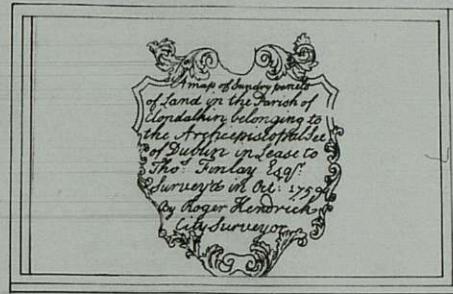 A map of Sundry parcels
of Land in the Parish of
Clondalkin belonging to
the Archiepiscopal See
of Dublin in Lease to
Thos. Finlay Esqr.
Survey'd in Oct: 1759
By Roger Kendrick
City Surveyor